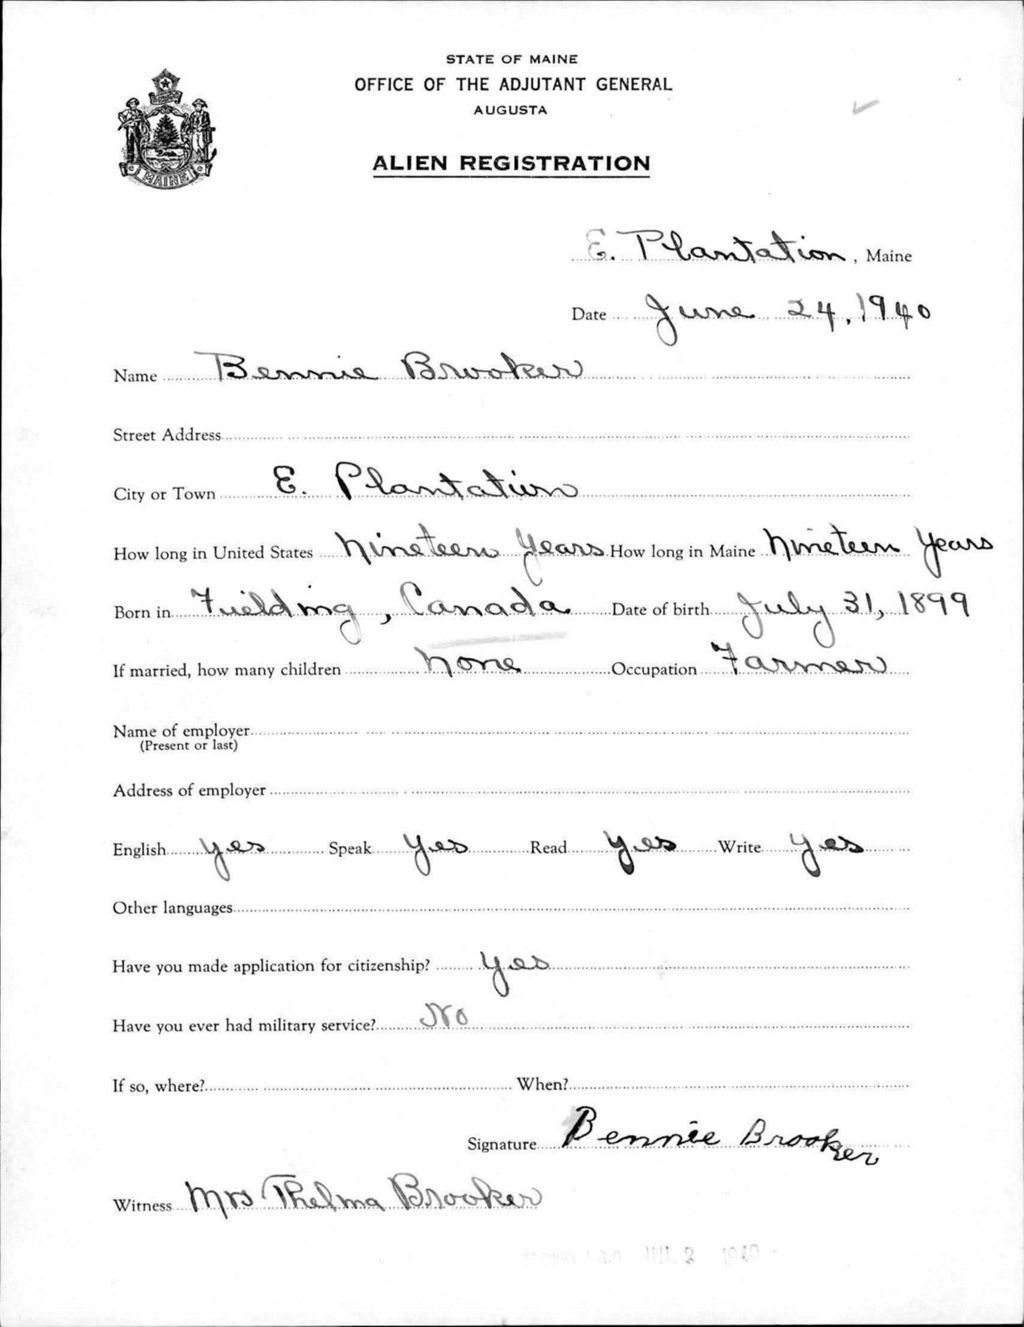 STATE OF MAINE
OFFICE OF THE ADJUTANT GENERAL
AUGUSTA
ALIEN REGISTRATION
MAINE
E. Plantation, Maine
Date June 24, 1940
Name Bennie Brooker
Street Address
City or Town E. Plantation
How long in United States Nineteen Years How long in Maine Nineteen Years
Born in Fuielding, Canada Date of birth July 31, 1899
If married, how many children None Occupation Farmer
Name of employer
(Present or last)
Address of employer
English yes Speak yes Read yes Write yes
Other languages
Have you made application for citizenship? yes
Have you ever had military service? No
If so, where? When?
Signature Bennie Brooker
Witness Mrs Thelma Brooker
JUL 2 1940